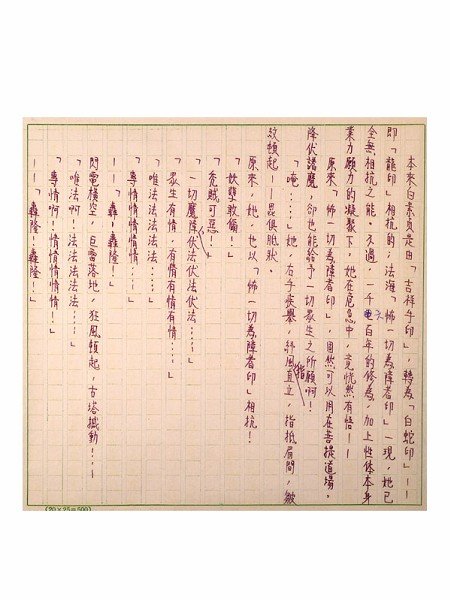 本來白素貞是由「吉祥手印」,轉為「白蛇印」——
即「龍印」相抗的;法海「怖一切為障者印」一現,她已
全無相抗之能。久過,一千七百年的修為,加上性體本身
業力願力的凝聚下,她在危急中,竟恍然有悟——
原來「怖一切為障者印」,固然可以用在菩提道場,
降伏諸魔,卻也能給予一切眾生之所願啊!
「唵……」她,右手疾舉,舒風直立,指抵眉間,皺
紋頓起——呈俱胝狀。
原來,她,也以「怖一切為障者印」相抗!
「妖孽敢爾!」
「禿賊可惡!」
「一切魔降伏法伏法伏法……」
「眾生有情,有情有情有情……」
「唯法法法法法……」
「專情情情情情……」
——「轟!轟隆!」
「唯法啊!法法法法法……」
「專情啊!情情情情情!」
——「轟隆!轟隆!」
閃電橫空,巨雷落地,狂風頓起,古塔撼動……
指
(20×25=500)